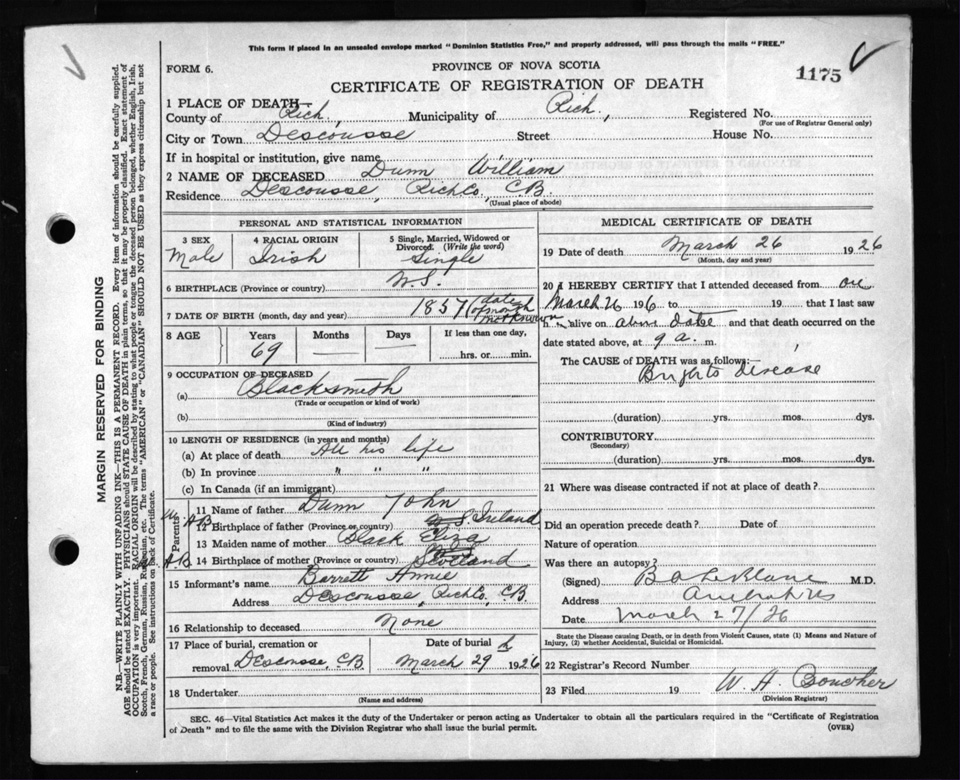 This form if placed in an unsealed envelope marked "Dominion Statistics Free," and properly addressed, will pass through the mails "FREE."
FORM 6.
PROVINCE OF NOVA SCOTIA
CERTIFICATE OF REGISTRATION OF DEATH
1175
1 PLACE OF DEATH—
County of Rich, Municipality of Rich, Registered No.
(For use of Registrar General only)
City or Town Descousse Street House No.
If in hospital or institution, give name
2 NAME OF DECEASED Dunn William
Residence Descousse, Richco, C.B.
(Usual place of abode)
PERSONAL AND STATISTICAL INFORMATION
3 SEX
Male
4 RACIAL ORIGIN
Irish
5 Single, Married, Widowed or Divorced. (Write the word)
Single
6 BIRTHPLACE (Province or country) N.S.
7 DATE OF BIRTH (month, day and year) 1857 (date of month not known
8 AGE
Years
69
Months
—
Days
—
If less than one day,
hrs. or min.
9 OCCUPATION OF DECEASED
(a) Blacksmith
(Trade or occupation or kind of work)
(b)
(Kind of industry)
10 LENGTH OF RESIDENCE (in years and months)
(a) At place of death All his life
(b) In province " " "
(c) In Canada (if an immigrant)
Parents
11 Name of father Dunn John
12 Birthplace of father (Province or country) Ireland
13 Maiden name of mother Black Eliza
14 Birthplace of mother (Province or country) Scotland
15 Informant's name Barrett Annie
Address Descousse, Richco, C.B.
16 Relationship to deceased None
17 Place of burial, cremation or removal Descousse C.B.
Date of burial
March 29 1926
18 Undertaker
(Name and address)
MEDICAL CERTIFICATE OF DEATH
19 Date of death March 26 1926
(Month, day and year)
20 I HEREBY CERTIFY that I attended deceased from on
March 26 1926 to 19 that I last saw
h alive on above date and that death occurred on the
date stated above, at 9 a. m.
The CAUSE of DEATH was as follows:—
Brights Disease
(duration) yrs. mos. dys.
CONTRIBUTORY
(Secondary)
(duration) yrs. mos. dys.
21 Where was disease contracted if not at place of death?
Did an operation precede death? Date of
Nature of operation
Was there an autopsy?
(Signed) B A LeBlanc M.D.
Address Arichat NS
Date March 27/26
State the Disease causing Death, or in death from Violent Causes, state (1) Means and Nature of Injury, (2) whether Accidental, Suicidal or Homicidal.
22 Registrar's Record Number
23 Filed 19 W. H. Boucher
(Division Registrar)
SEC. 46—Vital Statistics Act makes it the duty of the Undertaker or person acting as Undertaker to obtain all the particulars required in the "Certificate of Registration
of Death" and to file the same with the Division Registrar who shall issue the burial permit.
(OVER)
MARGIN RESERVED FOR BINDING
N.B.—WRITE PLAINLY WITH UNFADING INK—THIS IS A PERMANENT RECORD. Every item of information should be carefully supplied.
AGE should be stated EXACTLY. PHYSICIANS should STATE CAUSE OF DEATH in plain terms, so that it may be properly classified. Exact statement of
OCCUPATION is very important. RACIAL ORIGIN will be described by stating to what people or tongue the deceased person belonged, whether English, Irish,
Scotch, French, German, Russian, Ruthenian, etc. The terms "AMERICAN" or "CANADIAN" SHOULD NOT BE USED as they express citizenship but not
a race or people. See instructions on back of Certificate.